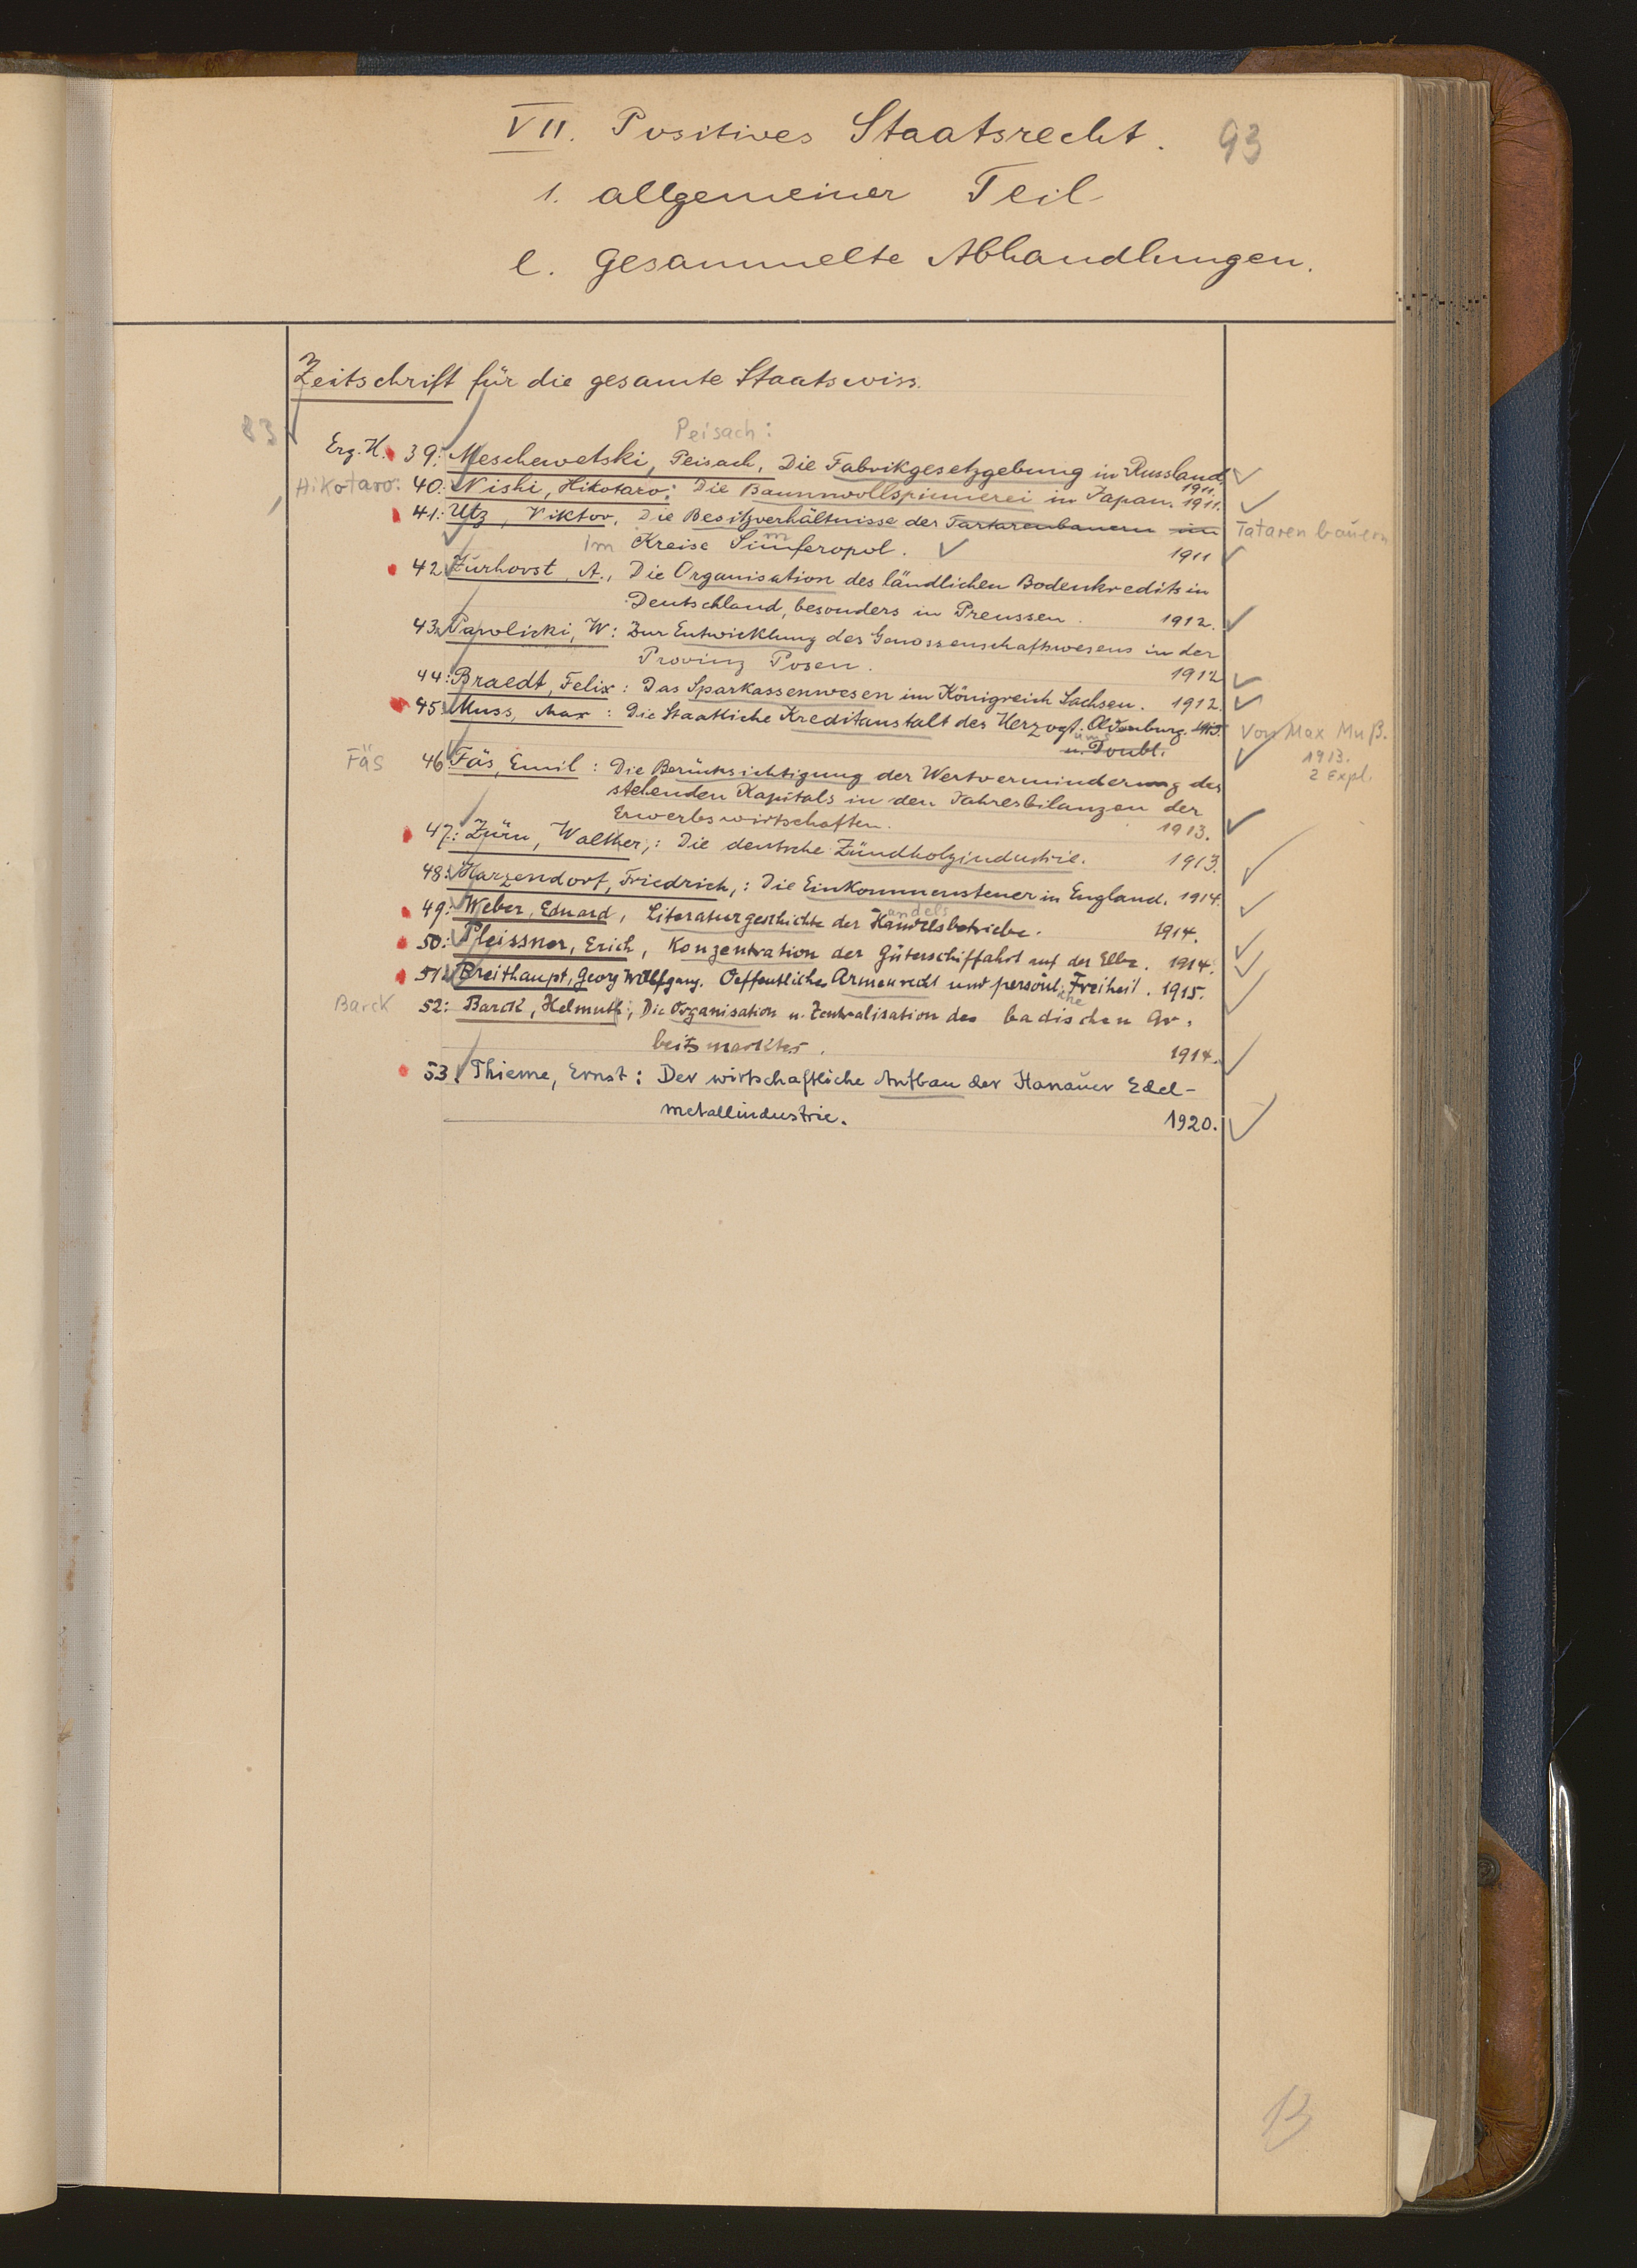 VII. Positives Staatsrecht. 93
1. allgemeiner Teil
e. Gesammelte Abhandlungen.
Zeitschrift für die gesamte Staatswiss.
83
Peisach:
Erg. H. 39: Meschewetski, Peisach, Die Fabrikgesetzgebung in Russland. 1911.
Hikotaro: 40: Nishi, Hikotaro: Die Baumwollspinnerei in Japan. 1911.
41: Utz, Viktor, Die Besitzverhältnisse der Tartarenbauern im Tatarenbauern
im Kreise Simferopol. 1911
42 Zurhorst, A., Die Organisation des ländlichen Bodenkredits in
Deutschland, besonders in Preussen. 1912.
43: Papolicki, W: Zur Entwicklung des Genossenschaftswesens in der
Provinz Posen. 1912
44: Braedt, Felix: Das Sparkassenwesen im Königreich Sachsen. 1912.
45: Muss, Max: Die Staatliche Kreditanstalt des Herzogt. Oldenburg. 1913. Von Max Muß.
u. Doubl. 1913.
2 Expl.
Fäs 46 Fäs, Emil: Die Berücksichtigung der Wertverminderung des
stehenden Kapitals in den Jahresbilanzen der
Erwerbswirtschaften. 1913.
47: Zürn, Walther,: Die deutsche Zündholzindustrie. 1913.
48: Harzendorf, Friedrich,: Die Einkommensteuer in England. 1914.
49: Weber, Eduard, Literaturgeschichte der Handelsbetriebe. 1914.
50: Pleissner, Erich, Konzentration der Güterschiffahrt auf der Elbe. 1914.
51: Breithaupt, Georg Wolfgang. Oeffentliches Armenrecht und persönliche Freiheit. 1915.
Barck 52: Barck, Helmuth; Die Organisation u. Zentralisation des badischen Ar-
beitsmarktes. 1914.
53: Thieme, Ernst: Der wirtschaftliche Aufbau der Hanauer Edel-
metallindustrie. 1920.
13